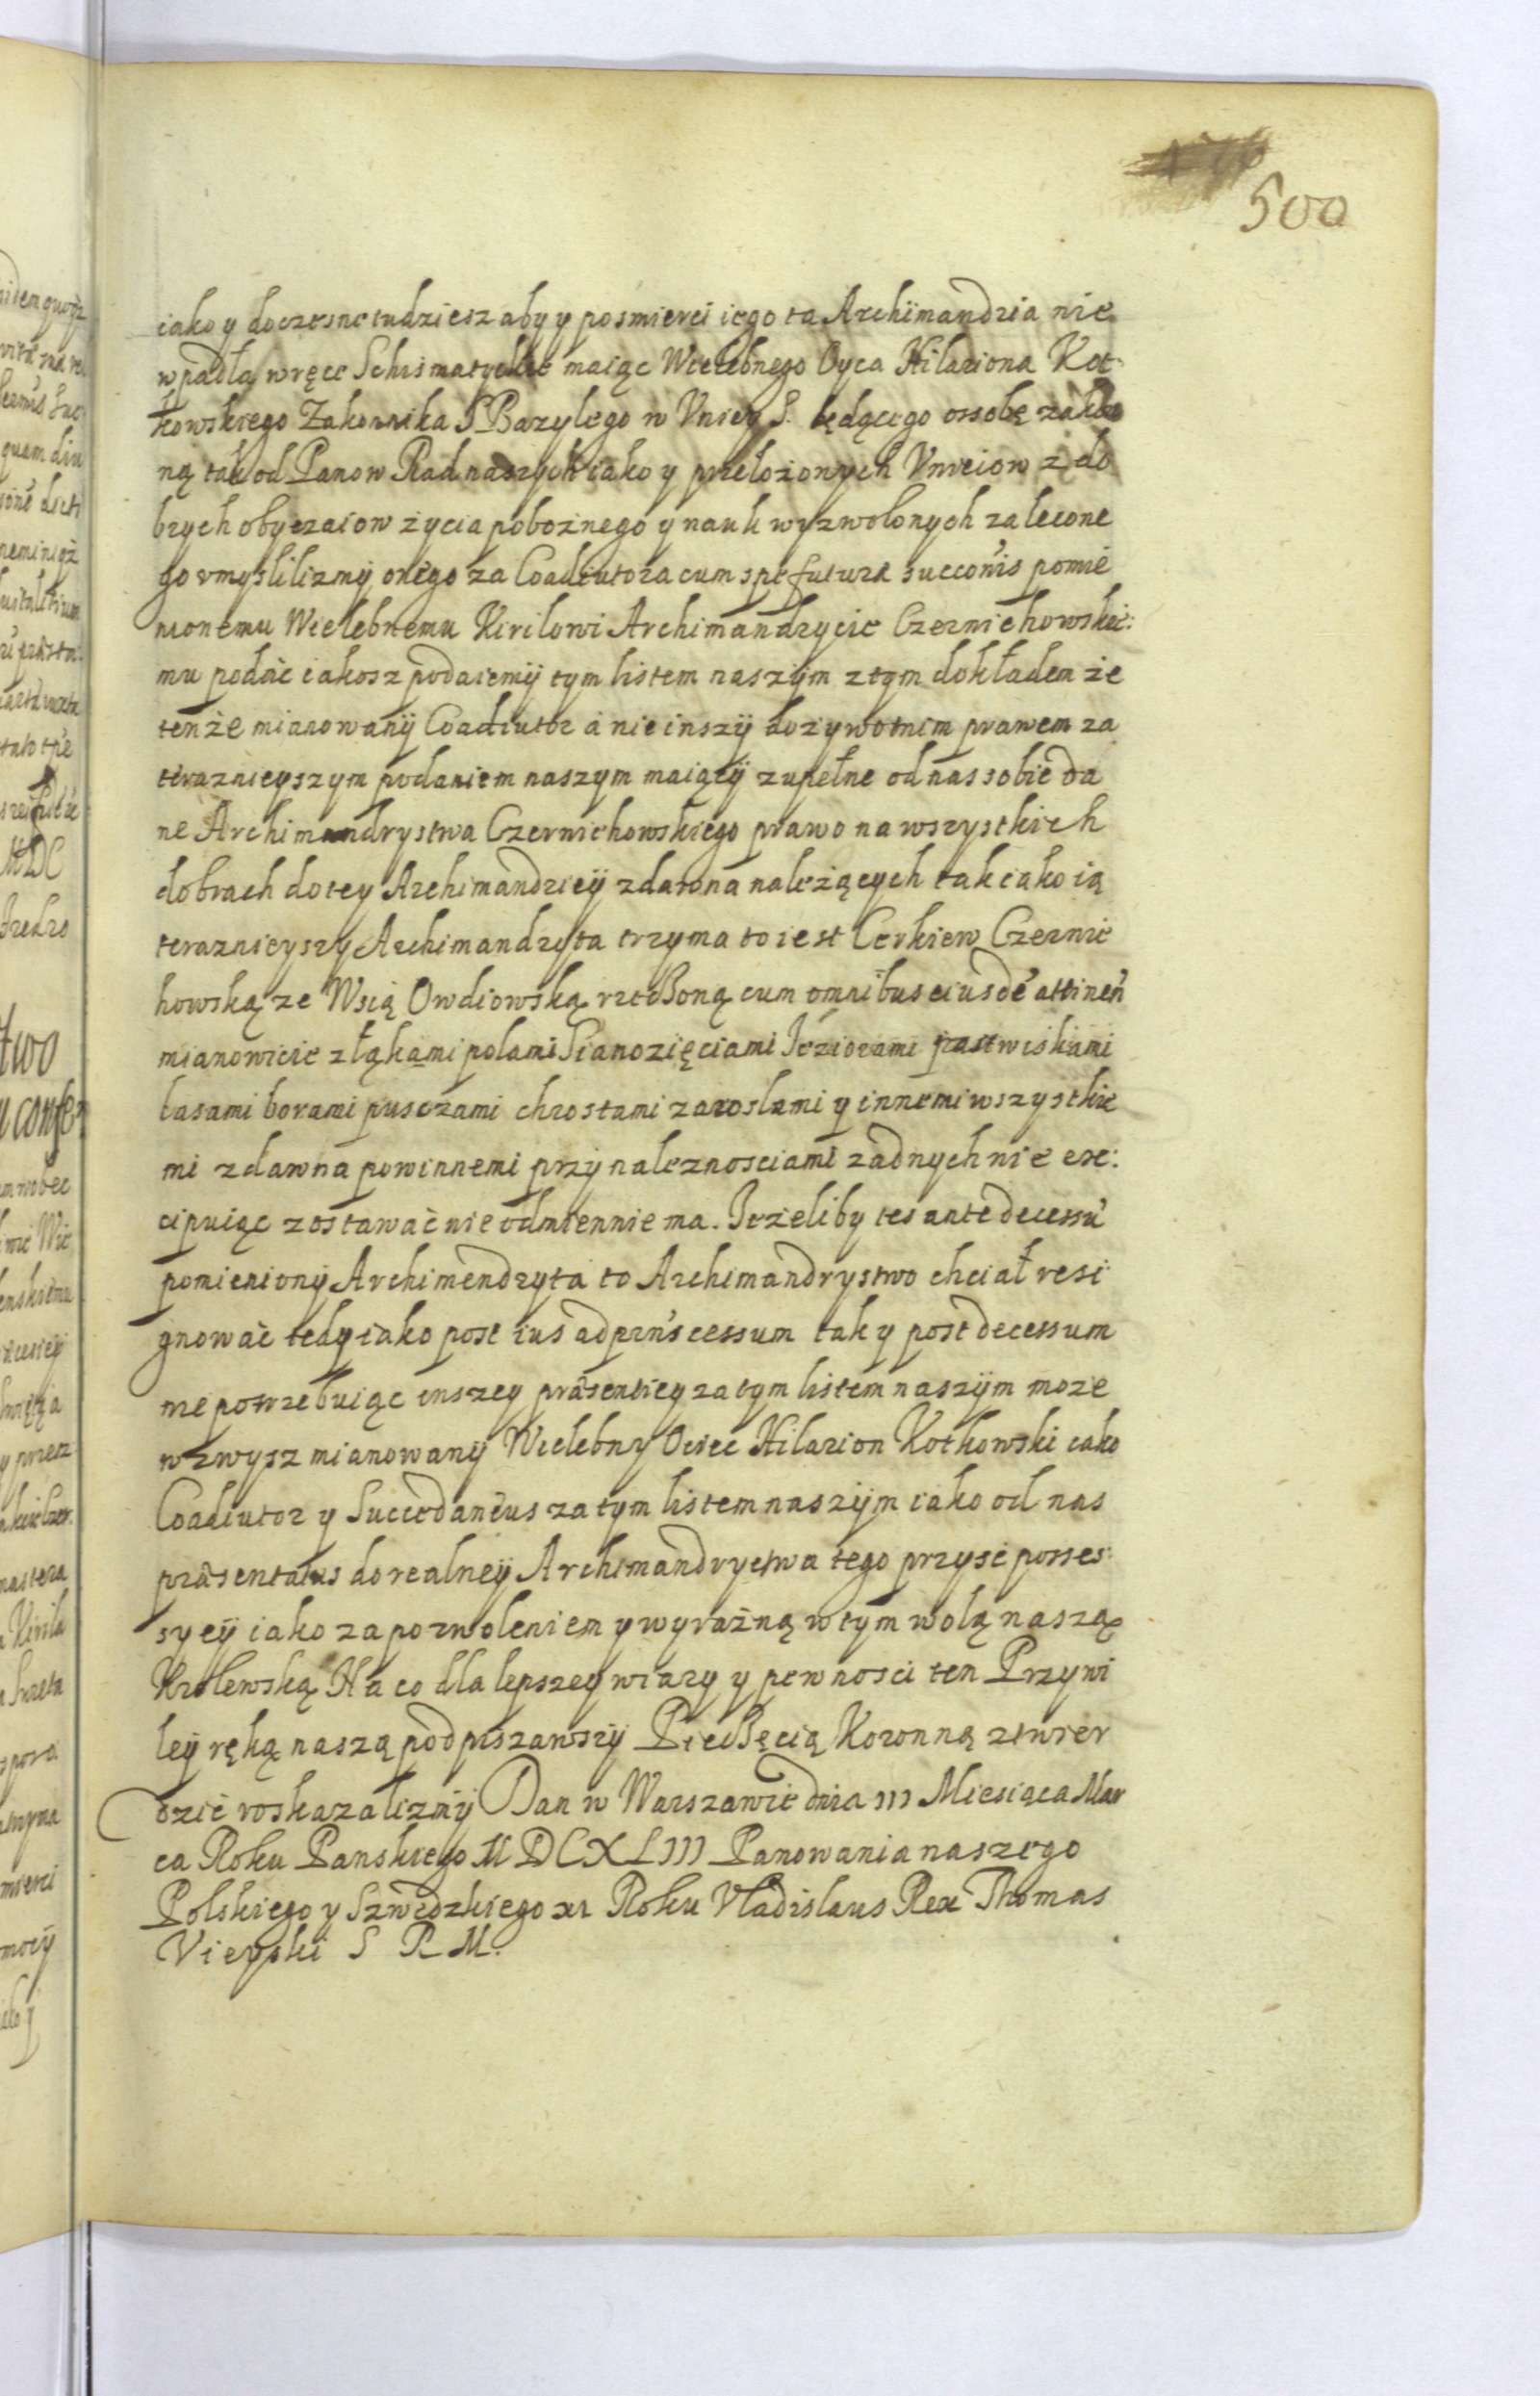 500
iako y doczesne tudziesz aby y posmierci iego ta Archimandria nie
wpadła w ręce Schismatyckie maiąc Wielebnego Oyca Hilariona Kot
kowskiego Zakonnika S Bazylego w Vniey S. będącego ossobę zakon
ną tak od Panow Rad naszych iako y przełożonych Vnreiow z do
brych obyczaiow życia pobożnego y nauk wyzwolonych zalecone
go vmyslilizmy onego za Coadiutora cum spe futuræ succōnis pomie
nionemu Wielebnemu Kirilowi Archimandrycie Czerniehowskie:
mu podać iakosz podaiemy tym listem naszym z tym dokładem że
tenże mianowany Coadiutor á nie inszy dożywotnim prawem za
teraznieyszym podaniem naszym maiący zupełne od nas sobie da
ne Archimandrystwa Czerniehowskiego prawo na wszystkich
dobrach do tey Archimandriey zdawna należących tak iako ią
teraznieyszy Archimandryta trzyma to iest Cerkiew Czernie
howską ze Wsią Owdiowską rzeczoną cum omnibus eiusdē attineñ
mianowicie z łąkami polami Sianozięciami Jeziorami pastwiskami
lasami borami pusczami chrostami zaroslami y innemi wszystkie
mi zdawna powinnemi przynaleznosciami żadnych nie exc:
cipuiąc zostawać nieodmiennie ma. Jeżeliby tes ante decessū
pomieniony Archimendryta to Archimandrystwo chciał resi
gnować tedy iako post ius ad prñs cessum tak y post decessum
nie potrzebuiąc inszey præsentiey za tym listem naszym moze
wzwysz mianowany Wielebny Ociec Hilarion Kotkowski iako
Coadiutor y Succedaneus za tym listem naszym iako od nas
præsentatus do realney Archimandryctwa tego przyść posses
syey iako za pozwoleniem y wyraźną w tym wolą naszą
Krolewską Na co dla lepszey wiary y pewnosci ten Przywi
ley ręką naszą podpiszawszy Pieczęcią Koronną ztwier
dzić roskazalizmy Dan w Warszawie dnia III Miesiąca Mar
ca Roku Panskiego MDCXLIII Panowania naszego
Polskiego y Szwedzkiego XI Roku Vladislaus Rex Thomas
Vieyski S R M.